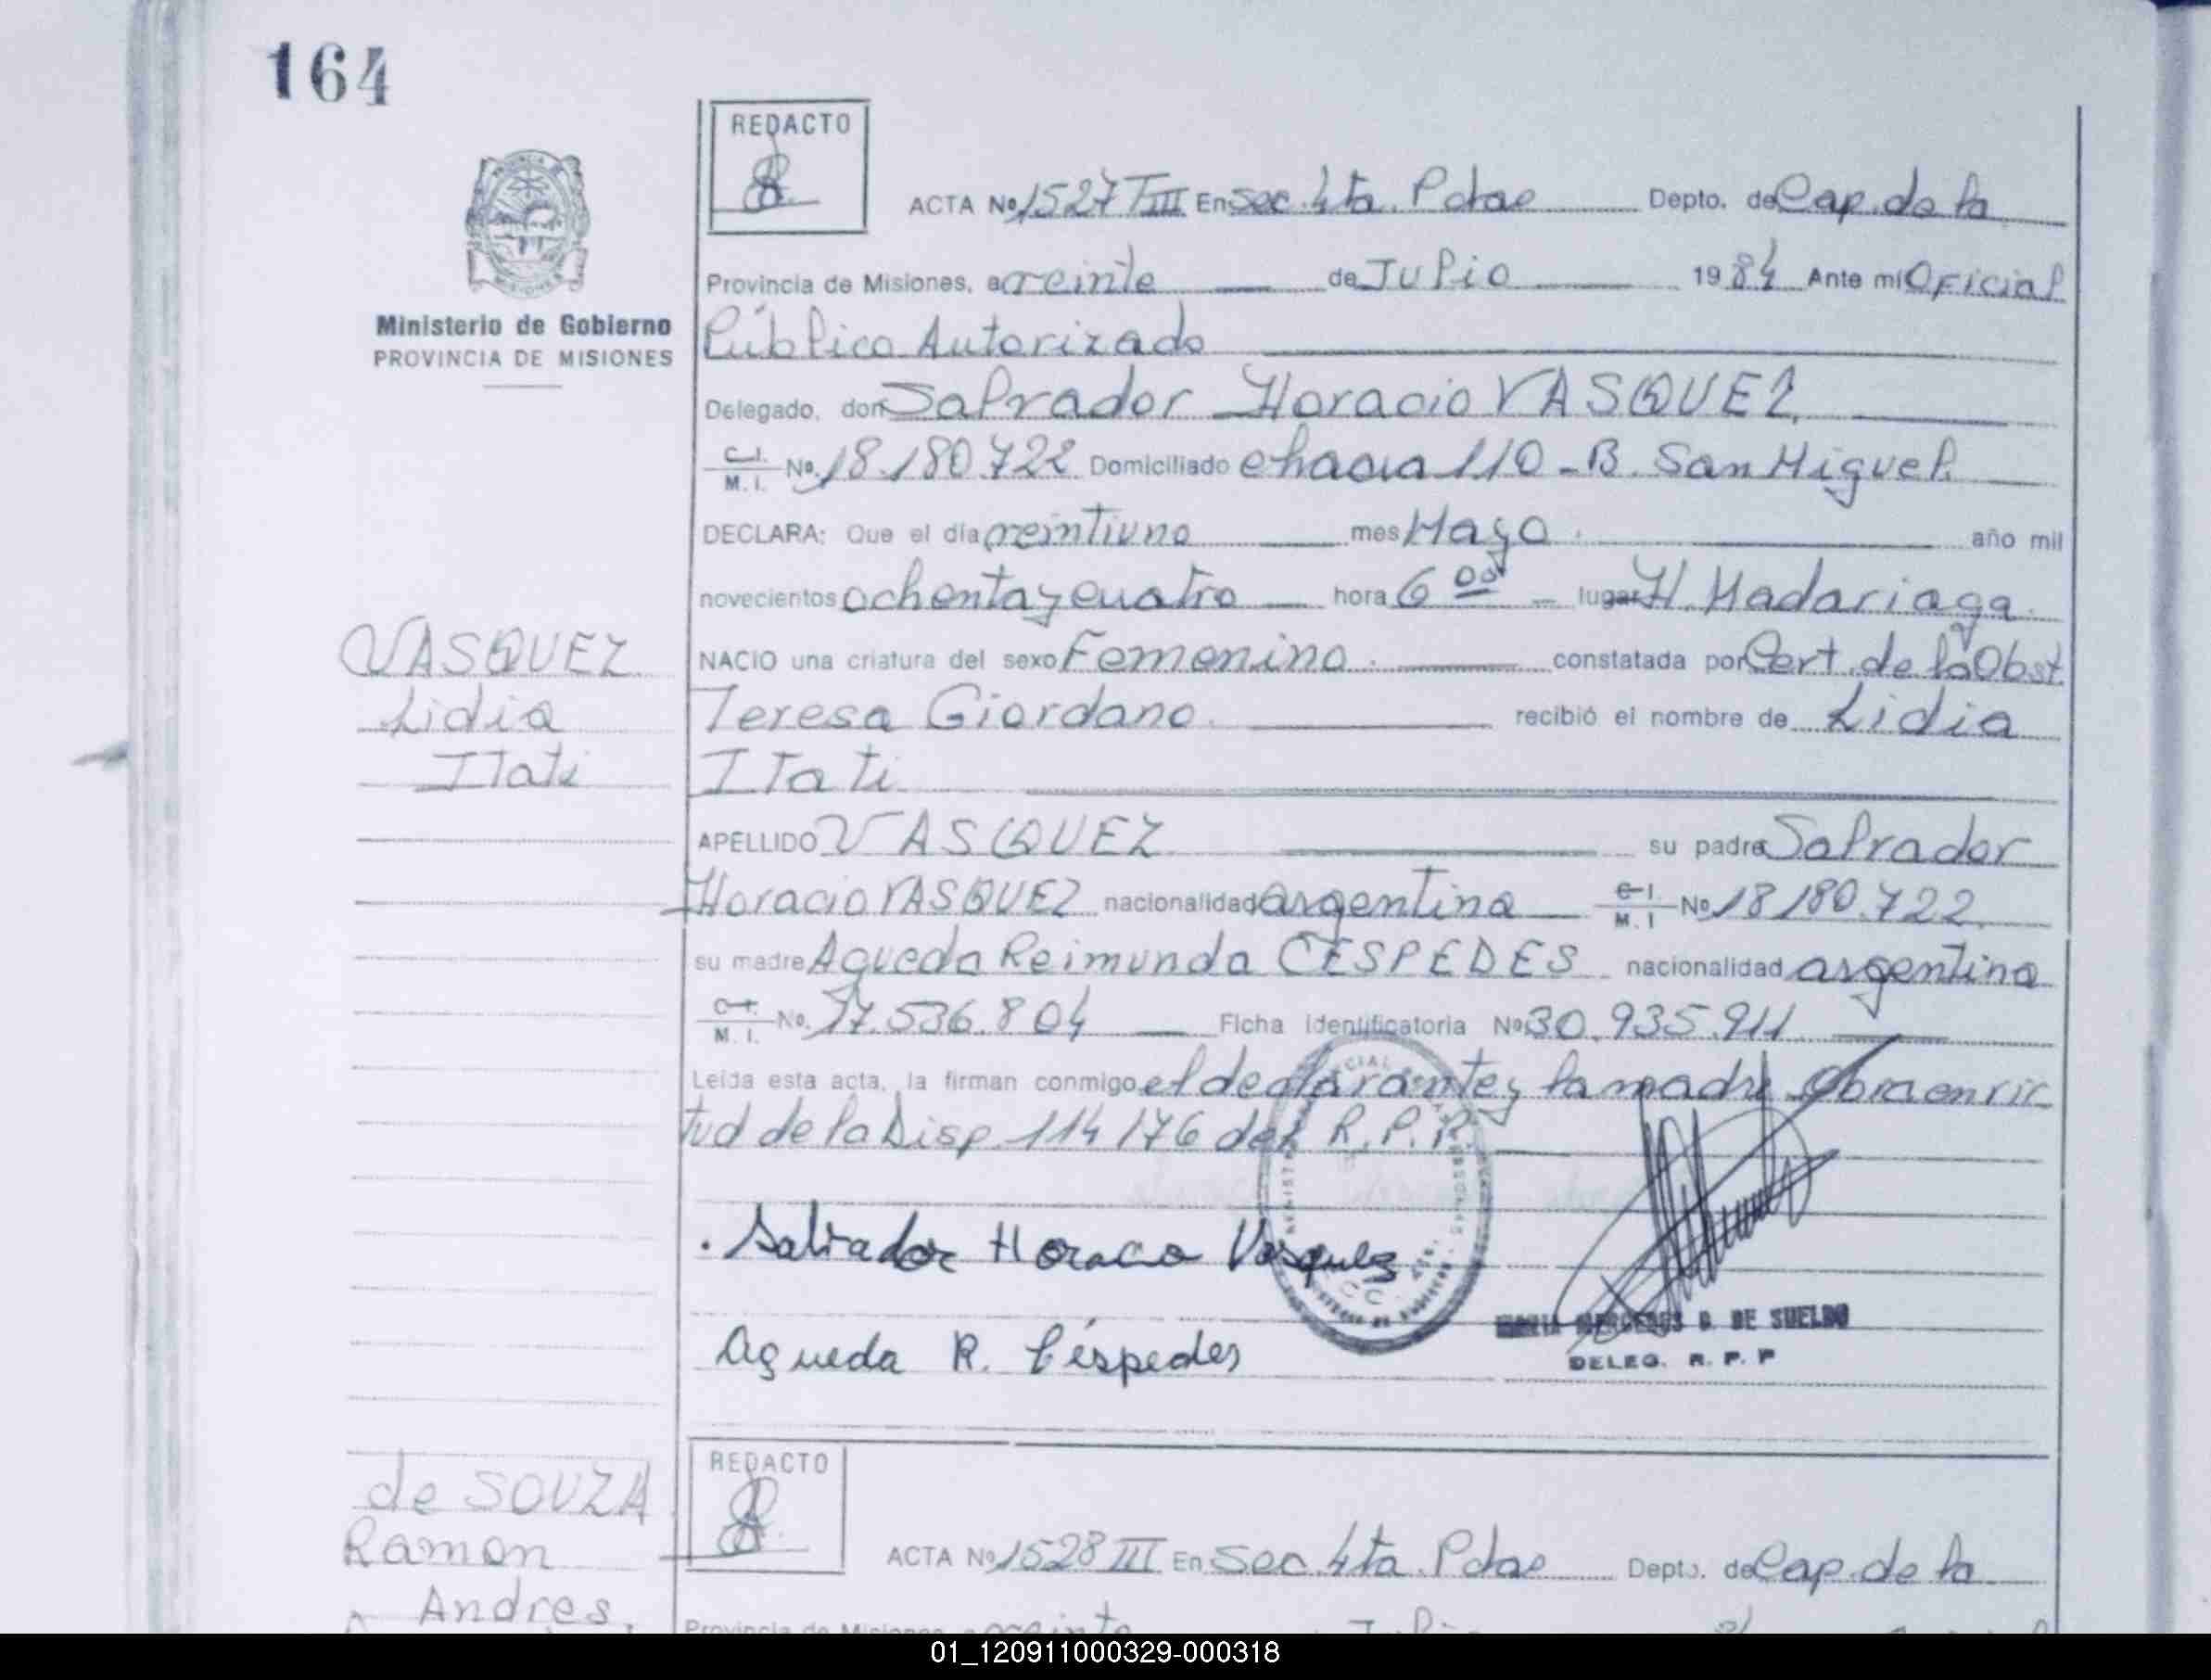 164
REDACTO
ACTA Nº 1527 T III En Sec. 4ta. Pdas Depto. de Cap. de la
Provincia de Misiones, a veinte de Julio 1984 Ante mi Oficial
Ministerio de Gobierno
PROVINCIA DE MISIONES
Público Autorizado
Delegado, don Salvador Horacio VASQUEZ
C.I. M.I. Nº. 18.180.722 Domiciliado chacra 110 - B. San Miguel
DECLARA: Que el día veintiuno mes Mayo año mil
novecientos ochenta y cuatro hora 6 00 lugar H. Madariaga
VASQUEZ
Lidia
Itati
NACIO una criatura del sexo Femenino. constatada por Cert. de la Obst.
Teresa Giordano. recibió el nombre de Lidia
Itati
APELLIDO VASQUEZ su padre Salvador
Horacio VASQUEZ nacionalidad argentina C.I. M.I Nº 18.180.722
su madre Agueda Reimunda CESPEDES nacionalidad argentina
C.I. M.I. Nº. 17.536.804 Ficha identificatoria Nº 30.935.911
Leída esta acta, la firman conmigo el declarante y la madre Obra en vir
tud de la Disp. 114/76 del R.P.P.
Salvador Horacio Vasquez
MARIA MERCEDES G. DE SUELDO
DELEG. R. P. P
Agueda R. Céspedes
de SOUZA
Ramon
Andres
REDACTO
ACTA Nº 1528 III En Sec. 4ta. Pdas Depto. de Cap. de la
Provincia de Misiones, a veinte
01_120911000329-000318